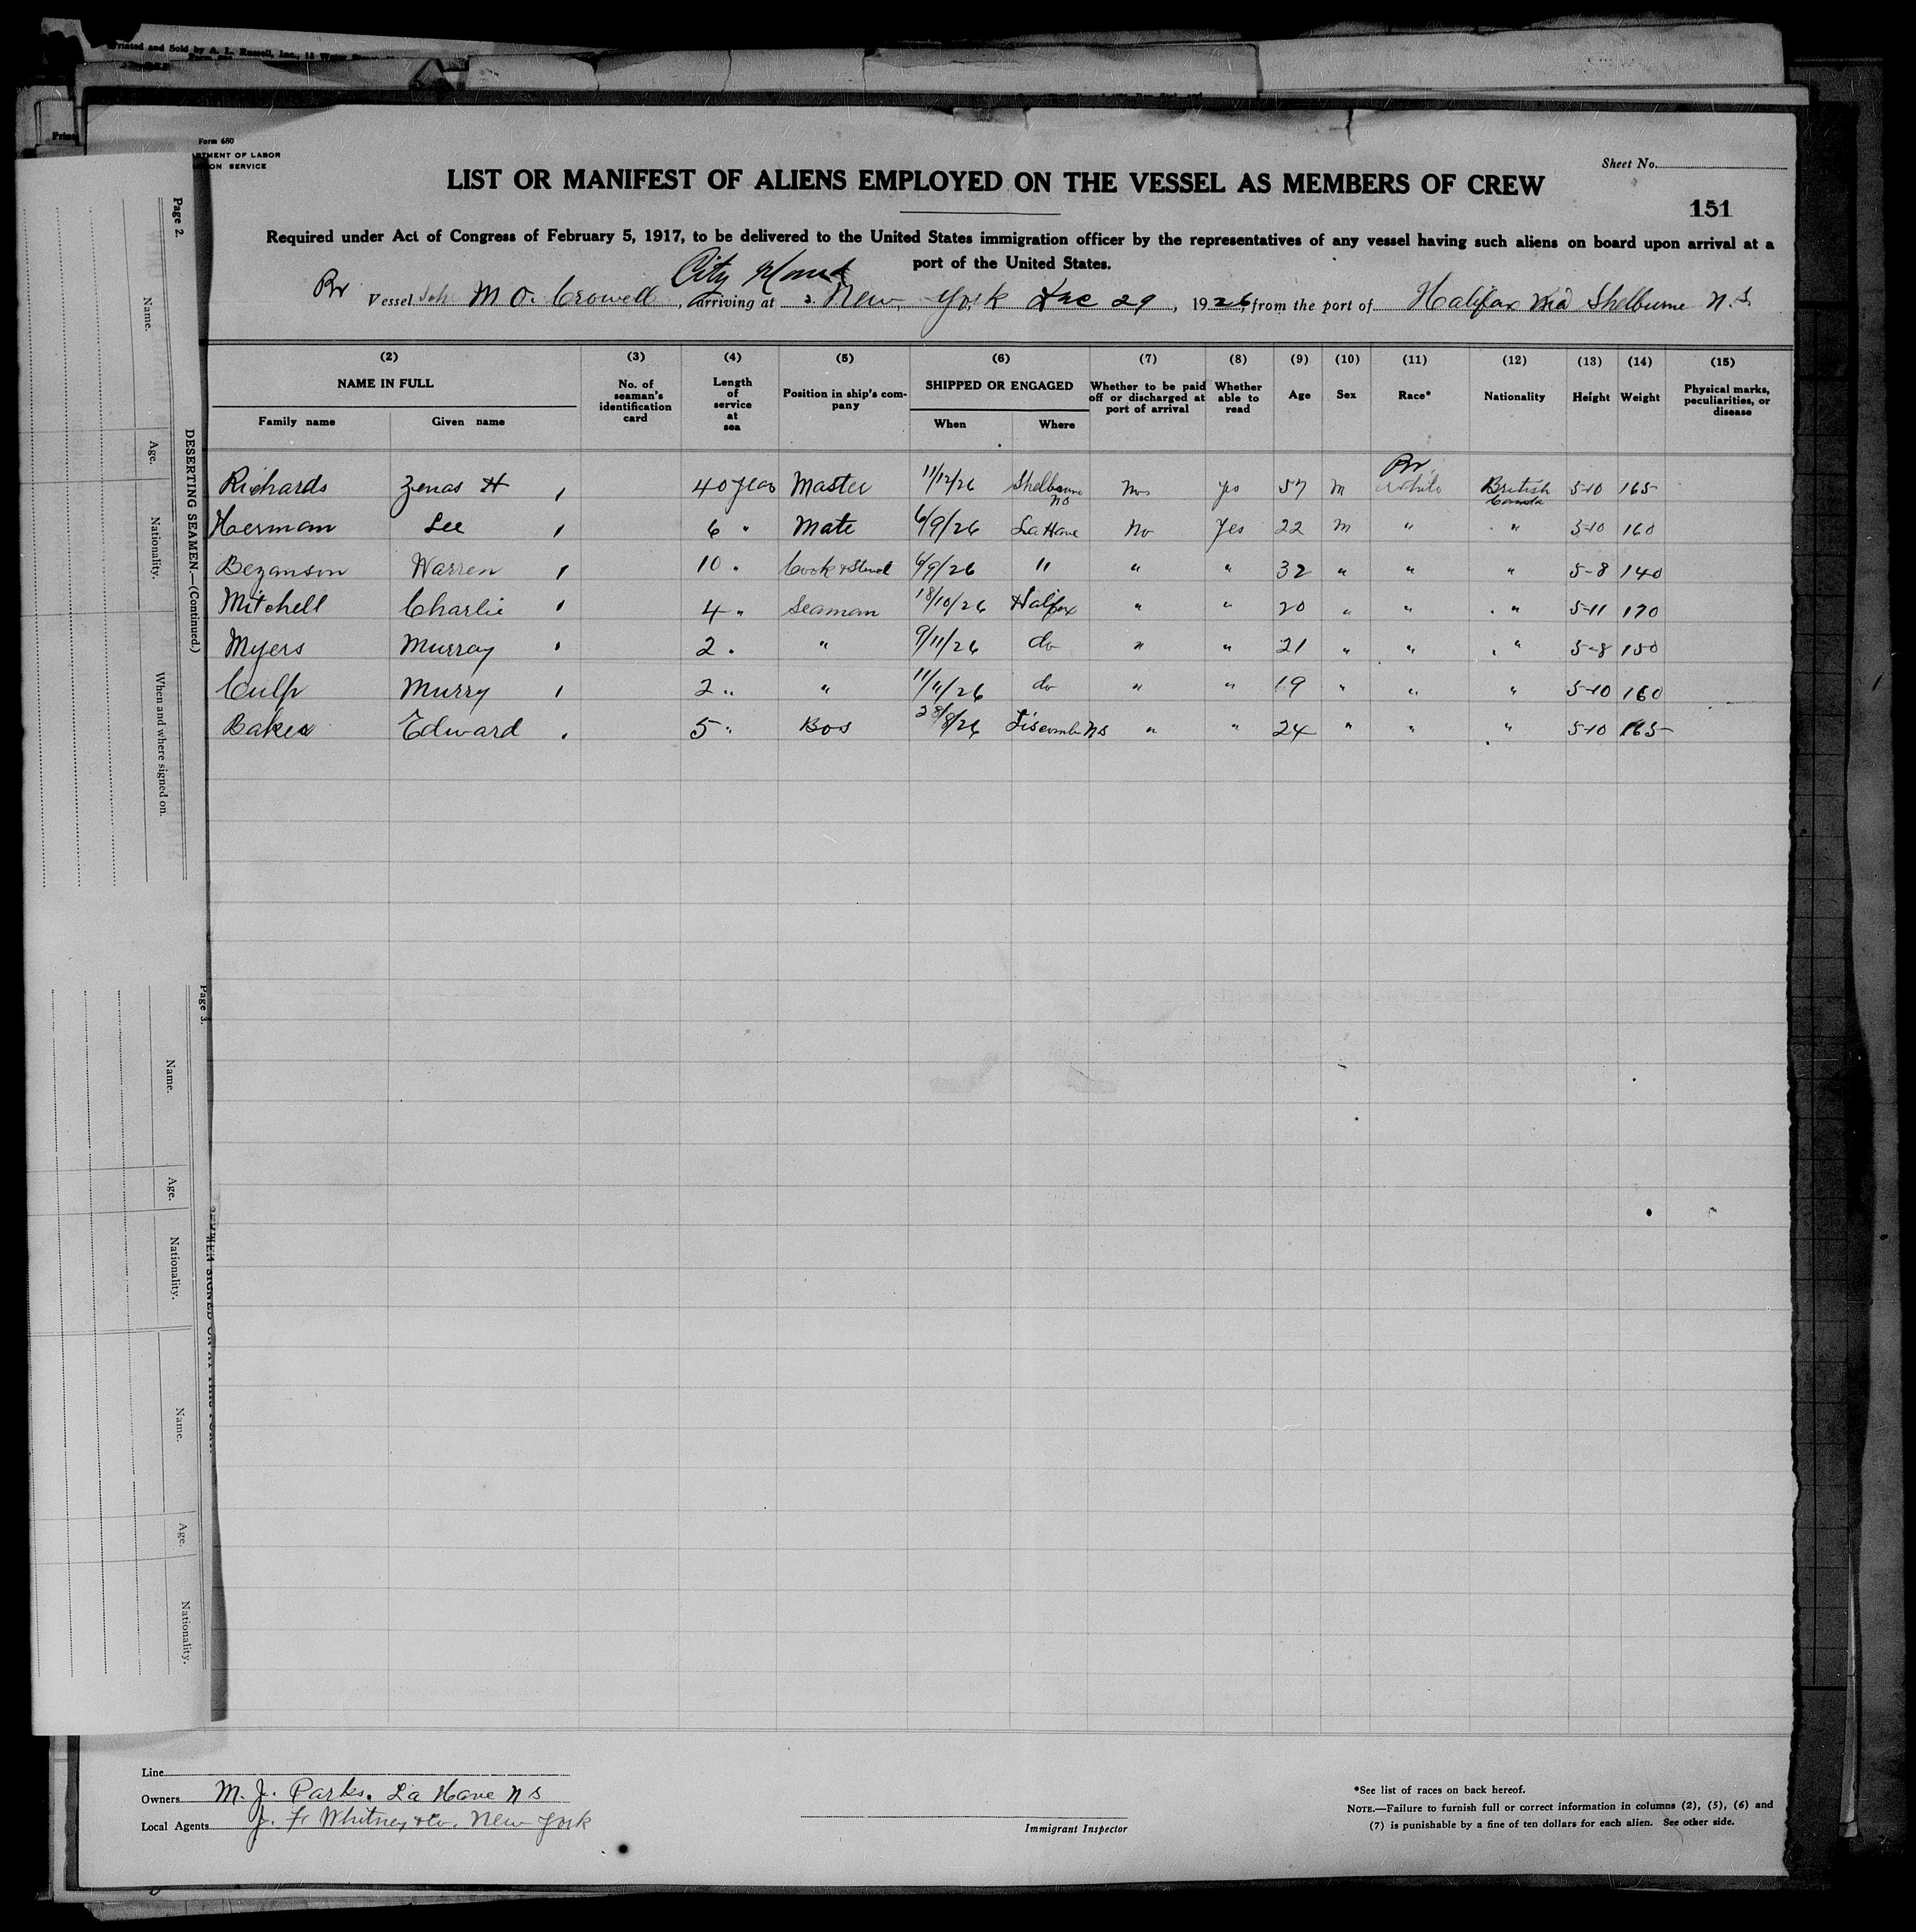 Printed and Sold by A. L. Russell, Inc., 13 Water
Form 680
RTMENT OF LABOR
ON SERVICE
Sheet No.
LIST OR MANIFEST OF ALIENS EMPLOYED ON THE VESSEL AS MEMBERS OF CREW
151
Required under Act of Congress of February 5, 1917, to be delivered to the United States immigration officer by the representatives of any vessel having such aliens on board upon arrival at a
port of the United States.
City
Br Vessel Sch M O. Crowell, arriving at New York Dec 29, 1926, from the port of Halifax via Shelburne N.S.
(2) (3) (4) (5) (6) (7) (8) (9) (10) (11) (12) (13) (14) (15)
NAME IN FULL
Family name Given name
No. of seaman's identification card
Length of service at sea
Position in ship's company
SHIPPED OR ENGAGED
When Where
Whether to be paid off or discharged at port of arrival
Whether able to read
Age Sex Race* Nationality Height Weight
Physical marks, peculiarities, or disease
Br
Richards Zenas H 40 years Master 11/12/26 Shelburne NS No Yes 57 M White British Canada 5-10 165
Herman Lee 6 " Mate 6/9/26 La Have No Yes 22 M " " 5-10 160
Bezanson Warren 10 " Cook & Steward 6/9/26 " " " 32 " " " 5-8 140
Mitchell Charlie 4 " Seaman 18/10/26 Halifax " " 20 " " " 5-11 170
Myers Murray 2 " " 9/11/26 do " " 21 " " " 5-8 150
Culp Murry 2 " " 11/11/26 do " " 19 " " " 5-10 160
Baker Edward 5 " Bos 28/8/26 Liscomb NS " " 24 " " " 5-10 165
Page 2.
DESERTING SEAMEN.—(Continued.)
Name. Age. Nationality. When and where signed on.
Page 3.
Name. Age. Nationality. Name. Age. Nationality.
Line
Owners M. J. Parks. La Have N S
Local Agents J. F. Whitney & Co. New York
Immigrant Inspector
*See list of races on back hereof.
NOTE.—Failure to furnish full or correct information in columns (2), (5), (6) and
(7) is punishable by a fine of ten dollars for each alien. See other side.